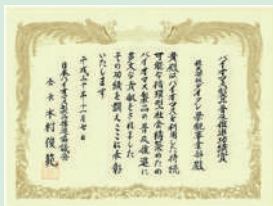 バイオマス製品普及推進功績賞
株式会社ダイクレ 景観事業部殿
貴殿はバイオマスを利用した持続
可能な循環型社会構築のため
バイオマス製品の普及促進に
多大な貢献をされました
その功績を讃えここに表彰
いたします
平成二十年十一月七日
日本バイオマス製品推進協議会
会長 木村俊範